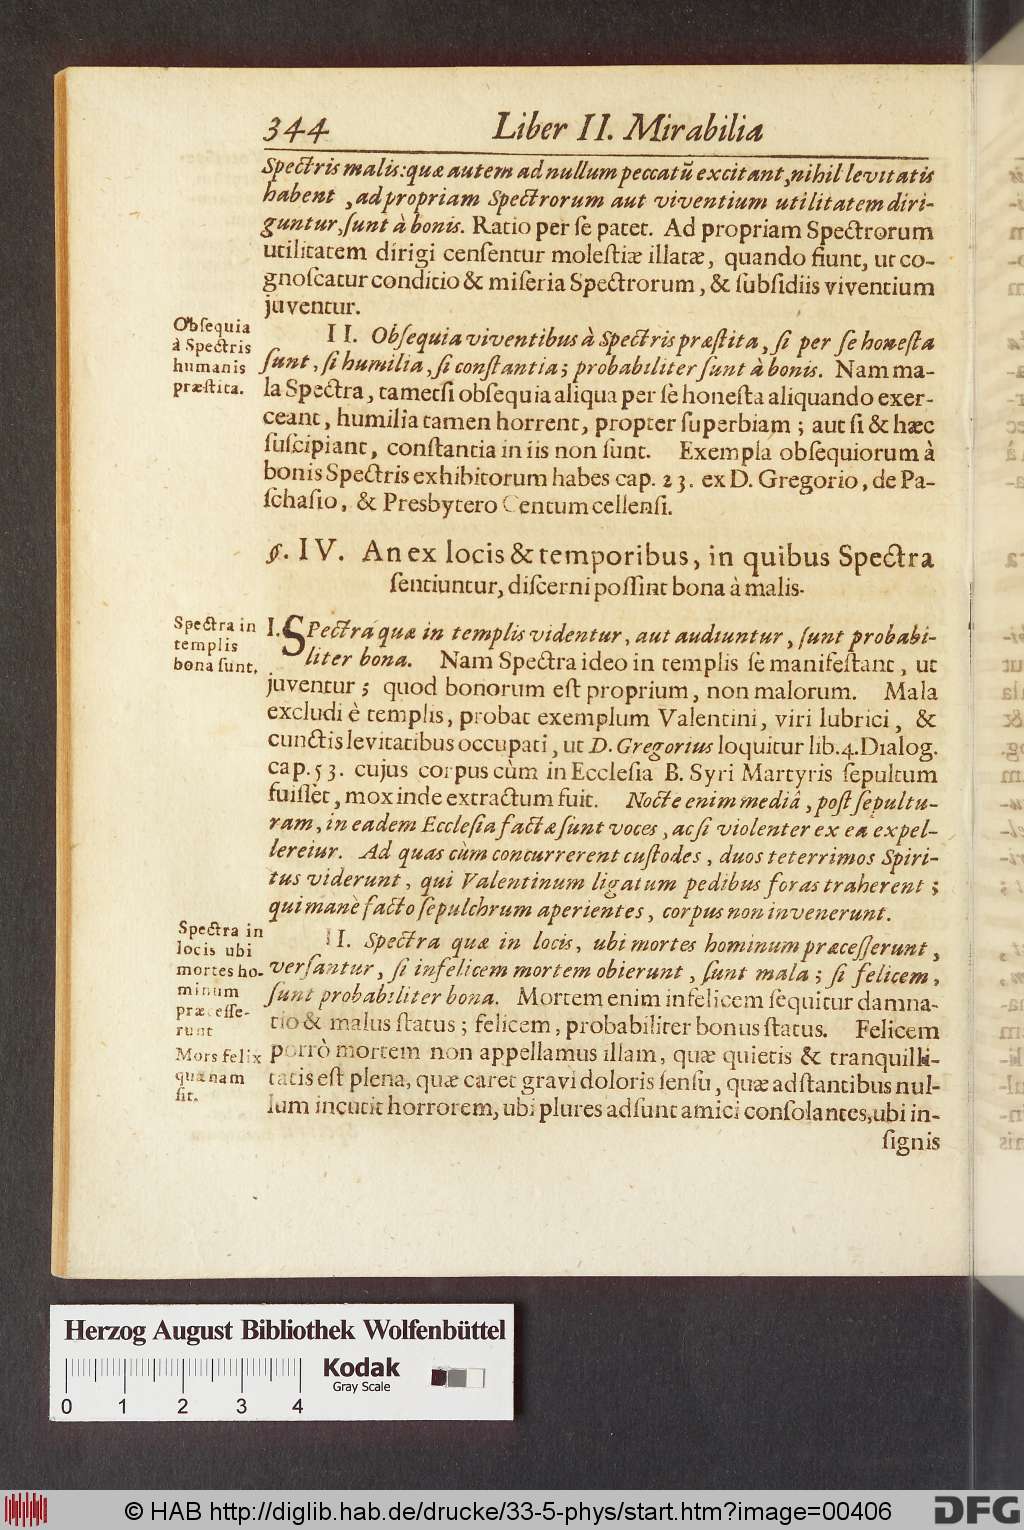 344 Liber II. Mirabilia
Spectris malis: quæ autem ad nullum peccatũ excitant, nihil levitatis
habent, ad propriam Spectrorum aut viventium utilitatem diri-
guntur, ſunt à bonis. Ratio per ſe patet. Ad propriam Spectrorum
utilitatem dirigi cenſentur moleſtiæ illatæ, quando fiunt, ut co-
gnoſcatur conditio & miſeria Spectrorum, & ſubſidiis viventium
juventur.
Obſequia
à Spectris
humanis
præſtita.
II. Obſequia viventibus à Spectris præſtita, ſi per ſe honeſta
ſunt, ſi humilia, ſi conſtantia; probabiliter ſunt à bonis. Nam ma-
la Spectra, tametſi obſequia aliqua per ſe honeſta aliquando exer-
ceant, humilia tamen horrent, propter ſuperbiam; aut ſi & hæc
ſuſcipiant, conſtantia in iis non ſunt. Exempla obſequiorum à
bonis Spectris exhibitorum habes cap. 23. ex D. Gregorio, de Pa-
ſchaſio, & Presbytero Centumcellenſi.
§. IV. An ex locis & temporibus, in quibus Spectra
ſentiuntur, diſcerni poſſint bona à malis.
Spectra in
templis
bona ſunt.
I. SPectra quæ in templis videntur, aut audiuntur, ſunt probabi-
liter bona. Nam Spectra ideo in templis ſe manifeſtant, ut
juventur; quod bonorum eſt proprium, non malorum. Mala
excludi è templis, probat exemplum Valentini, viri lubrici, &
cunctis levitatibus occupati, ut D. Gregorius loquitur lib. 4. Dialog.
cap. 53. cujus corpus cùm in Eccleſia B. Syri Martyris ſepultum
fuiſſet, mox inde extractum fuit. Nocte enim mediâ, poſt ſepultu-
ram, in eadem Eccleſia factæ ſunt voces, ac ſi violenter ex ea expel-
leretur. Ad quas cùm concurrerent cuſtodes, duos teterrimos Spiri-
tus viderunt, qui Valentinum ligatum pedibus foras traherent;
qui manè facto ſepulchrum aperientes, corpus non invenerunt.
Spectra in
locis ubi
mortes ho-
minum
præceſſe-
runt
II. Spectra quæ in locis, ubi mortes hominum præceſſerunt,
verſantur, ſi infelicem mortem obierunt, ſunt mala; ſi felicem,
ſunt probabiliter bona. Mortem enim infelicem ſequitur damna-
tio & malus ſtatus; felicem, probabiliter bonus ſtatus. Felicem
Mors felix
quænam
ſit.
porrò mortem non appellamus illam, quæ quietis & tranquilli-
tatis eſt plena, quæ caret gravi doloris ſenſu, quæ adſtantibus nul-
lum incutit horrorem, ubi plures adſunt amici conſolantes, ubi in-
ſignis
Herzog August Bibliothek Wolfenbüttel
Kodak
Gray Scale
0 1 2 3 4
© HAB http://diglib.hab.de/drucke/33-5-phys/start.htm?image=00406
DFG